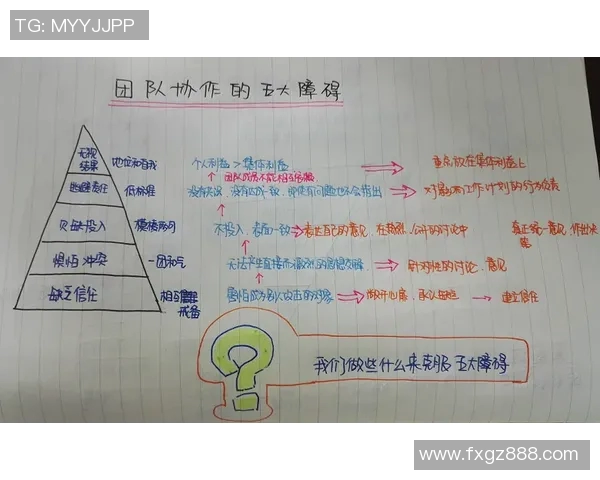 TG: MYYJJPP
团队协作的五大障碍
无视结果 地位和自我 个人利益 > 集体利益 重点放在集体利益上
团队成员不能相互
逃避责任 低标准 没有 没有达成一致,即使有问题也不会指出 对影响工作计划的行为负责
欠缺投入 模棱两可 不投入,表面一致 表达自己的意见,在 公开的讨论中 真正统一意见,作出决定
惧怕冲突 一团和气 无法产生直接而激烈的思想交锋 针对性的讨论、意见
缺乏信任 相互戒备 害怕成为别人攻击的对象 敞开心扉,承认缺陷 建立信任
我们做些什么来克服五大障碍
www.fxgz888.com